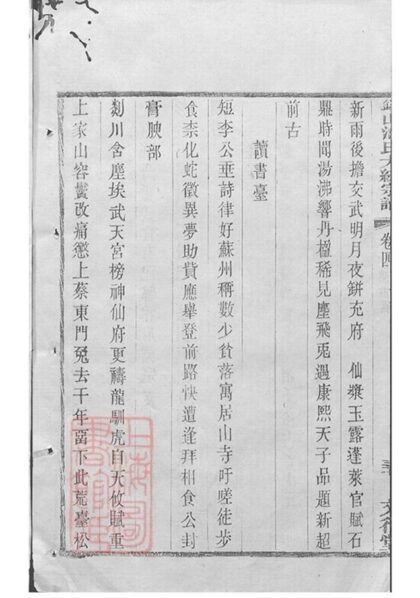 新雨後擔交武明月夜鉼充府　仙漿玉露蓬萊官賦石
鼎時聞湯沸響丹檻稀見塵飛兎遇康熙天子品題新超
前古
讀書臺
短李公垂詩律好蘇州稱數少貧落寓居山寺吁嗟徒步
食柰化蛇徵異夢助貲應舉登前路快遭逢拜相食公封
膏腴部
剡川舍塵埃武天宮榜神仙府更禱龍馴虎自天攸賦重
上家山容鬢改痛懲上蔡東門兔去千年畱下此荒臺松
卷四
文行堂